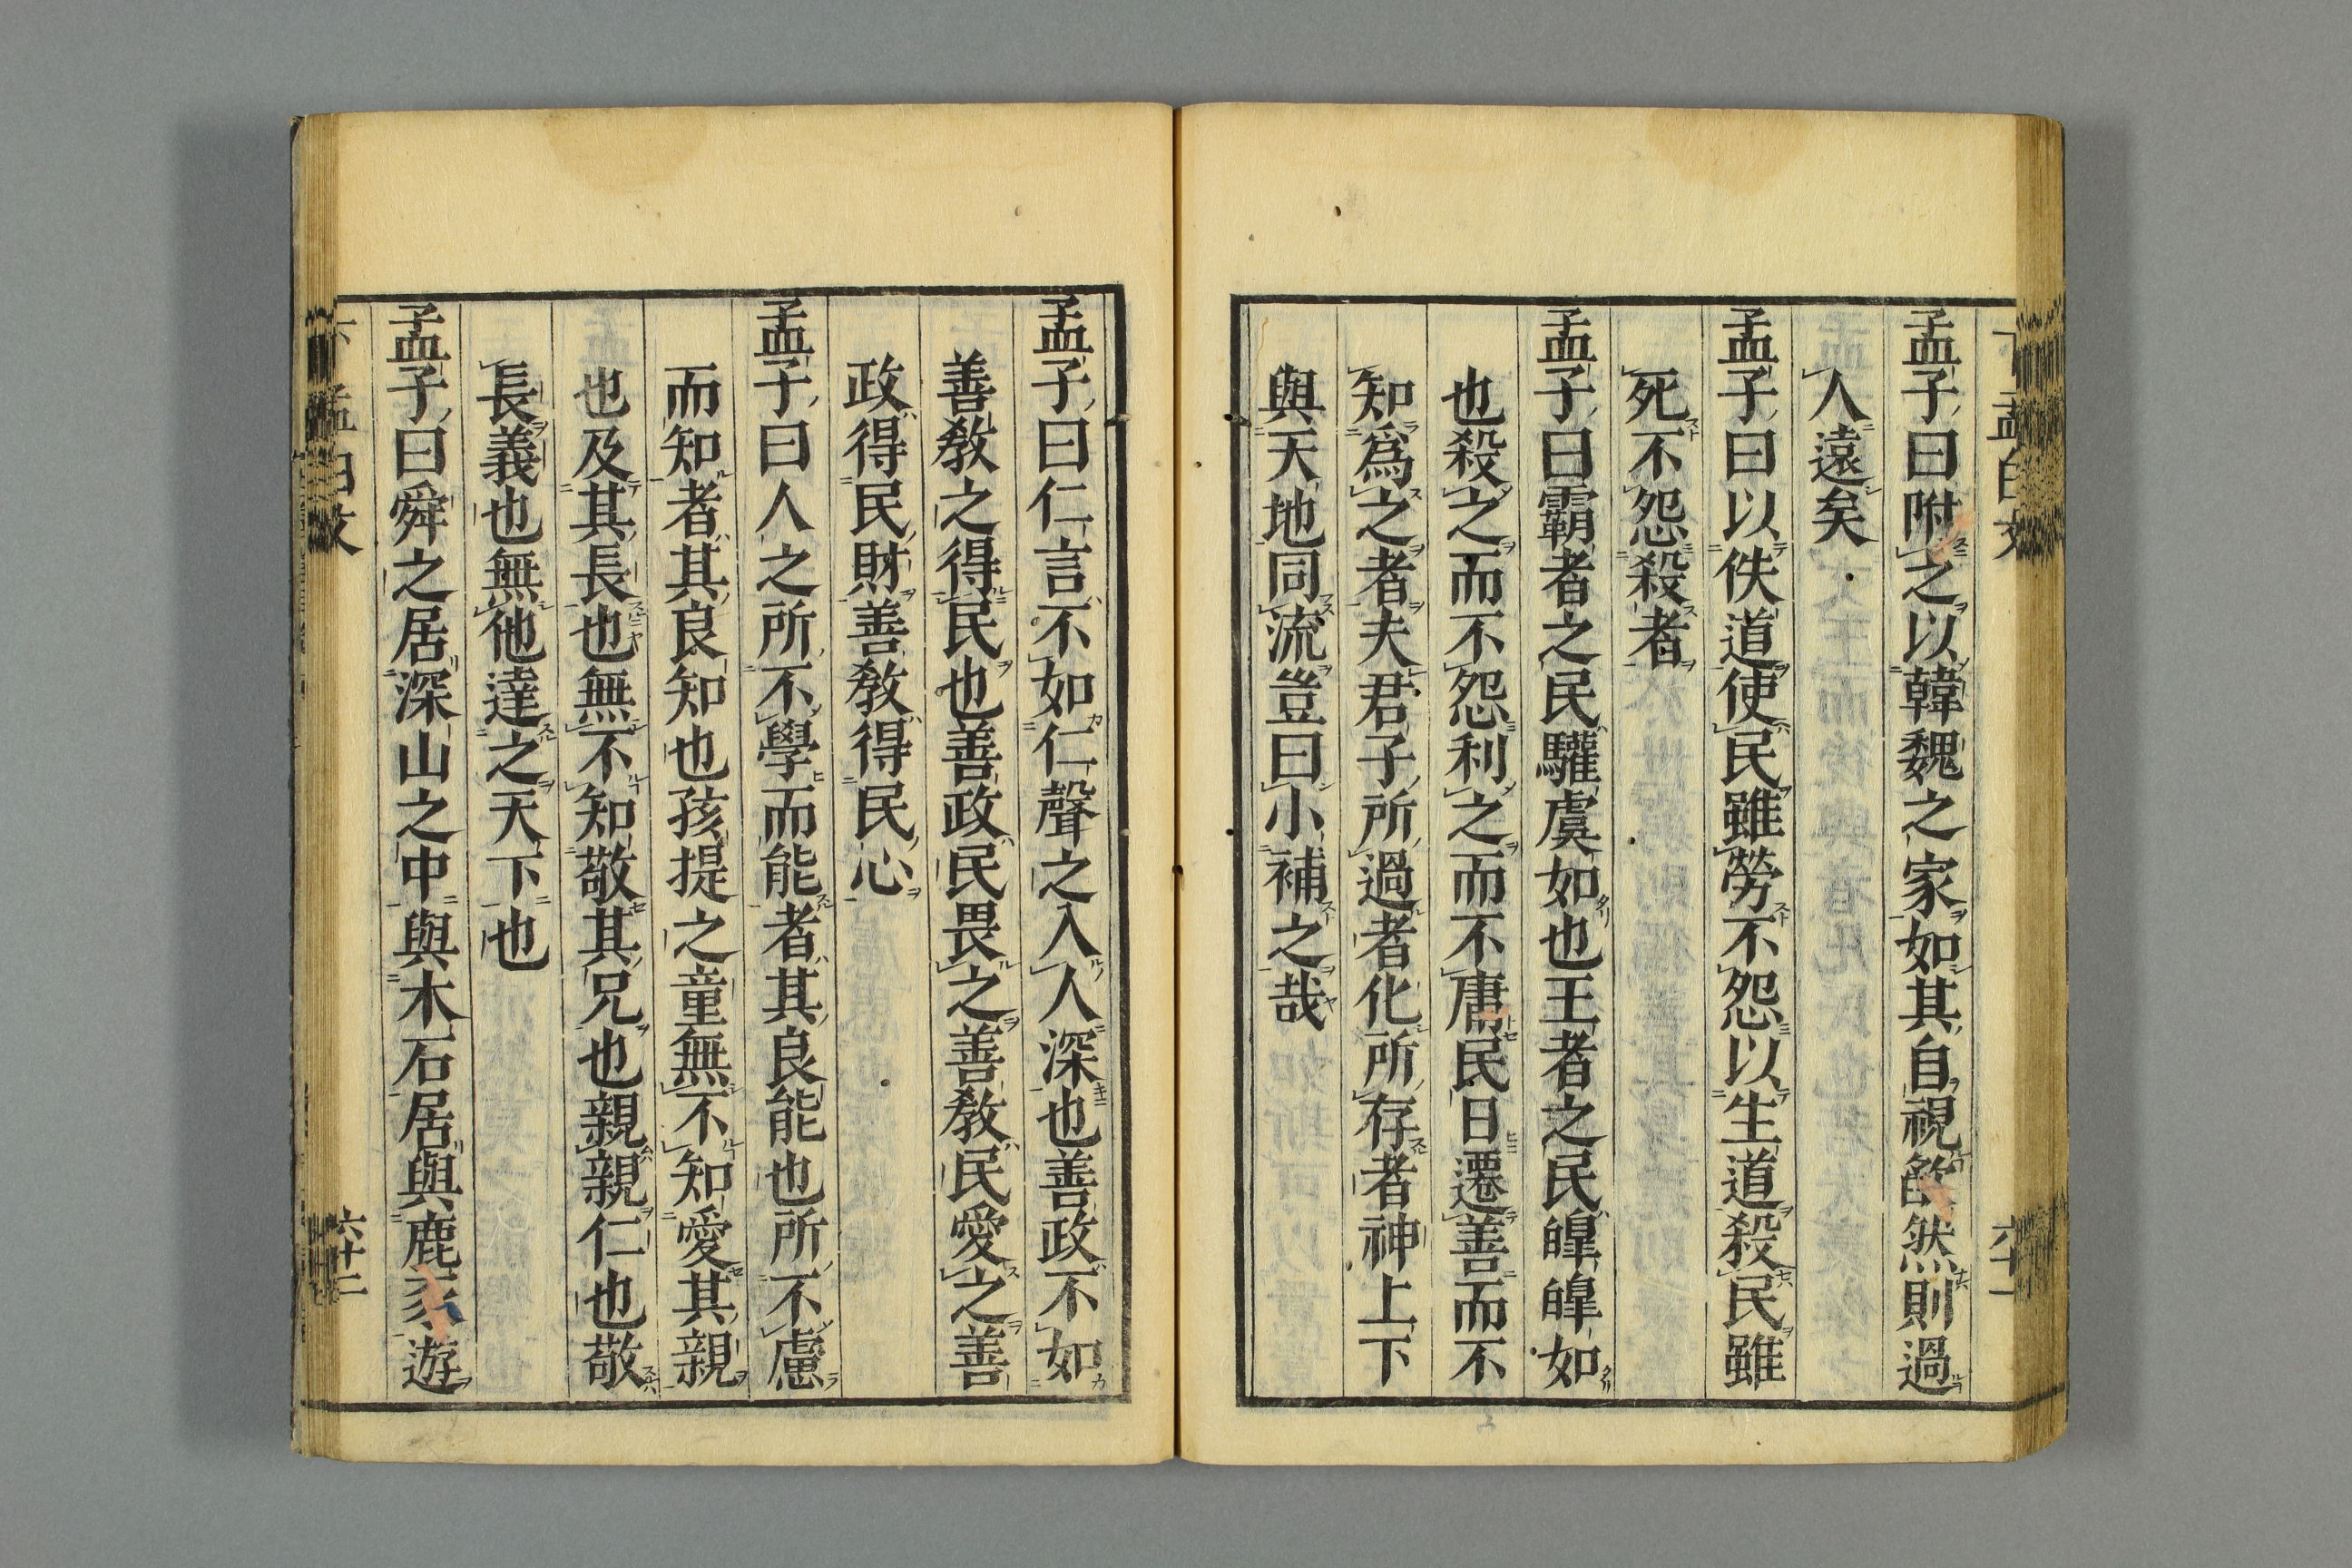 孟子曰附之以韓魏之家如其自視欿然則過
人遠矣
孟子曰以佚道使民雖勞不怨以生道殺民雖
死不怨殺者
孟子曰霸者之民驩虞如也王者之民皥皥如
也殺之而不怨利之而不庸民日遷善而不
知爲之者夫君子所過者化所存者神上下
與天地同流豈曰小補之哉
孟子曰仁言不如仁聲之入人深也善政不如
善敎之得民也善政民畏之善敎民愛之善
政得民財善敎得民心
孟子曰人之所不學而能者其良能也所不慮
而知者其良知也孩提之童無不知愛其親
也及其長也無不知敬其兄也親親仁也敬
長義也無他達之天下也
孟子曰舜之居深山之中與木石居與鹿豕遊
六十二